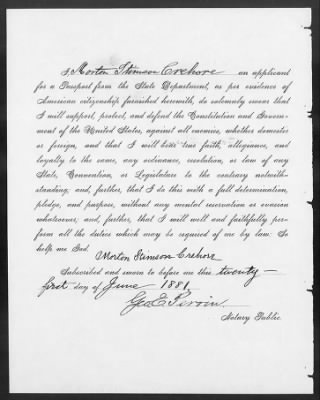 I, Morton Stimson Crehore an applicant
for a Passport from the State Department, as per evidence of
American citizenship furnished herewith, do solemnly swear that
I will support, protect, and defend the Constitution and Govern-
ment of the United States, against all enemies, whether domestic
or foreign, and that I will bear true faith, allegiance, and
loyalty to the same, any ordinance, resolution, or law of any
State, Convention, or Legislature to the contrary notwith-
standing; and, further, that I do this with a full determination,
pledge, and purpose, without any mental reservation or evasion
whatsoever; and, further, that I will well and faithfully per-
form all the duties which may be required of me by law: So
help me God.
Morton Stimson Crehore
Subscribed and sworn to before me this twenty-
first day of June 1881
Geo E Perrin
Notary Public.